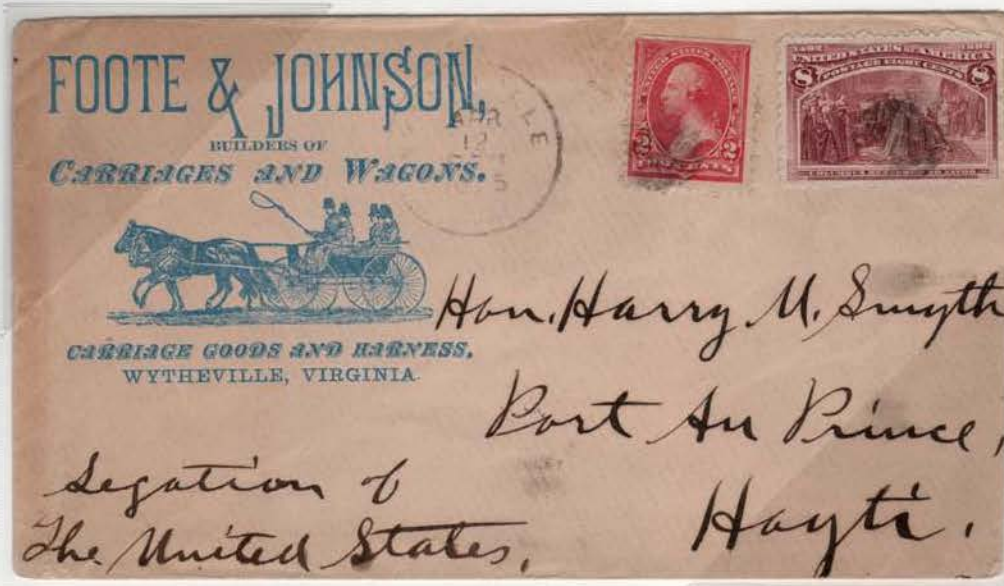 FOOTE & JOHNSON,
BUILDERS OF
CARRIAGES AND WAGONS.
CARRIAGE GOODS AND HARNESS,
WYTHEVILLE, VIRGINIA.
LE
APR
12
5
UNITED STATES POSTAGE
2 2
TWO CENTS
1492 1892
UNITED STATES OF AMERICA
POSTAGE EIGHT CENTS
8 8
COLUMBUS RESTORED TO FAVOR
Hon. Harry M. Smyth
Port Au Prince,
Hayti.
Legation of
The United States,